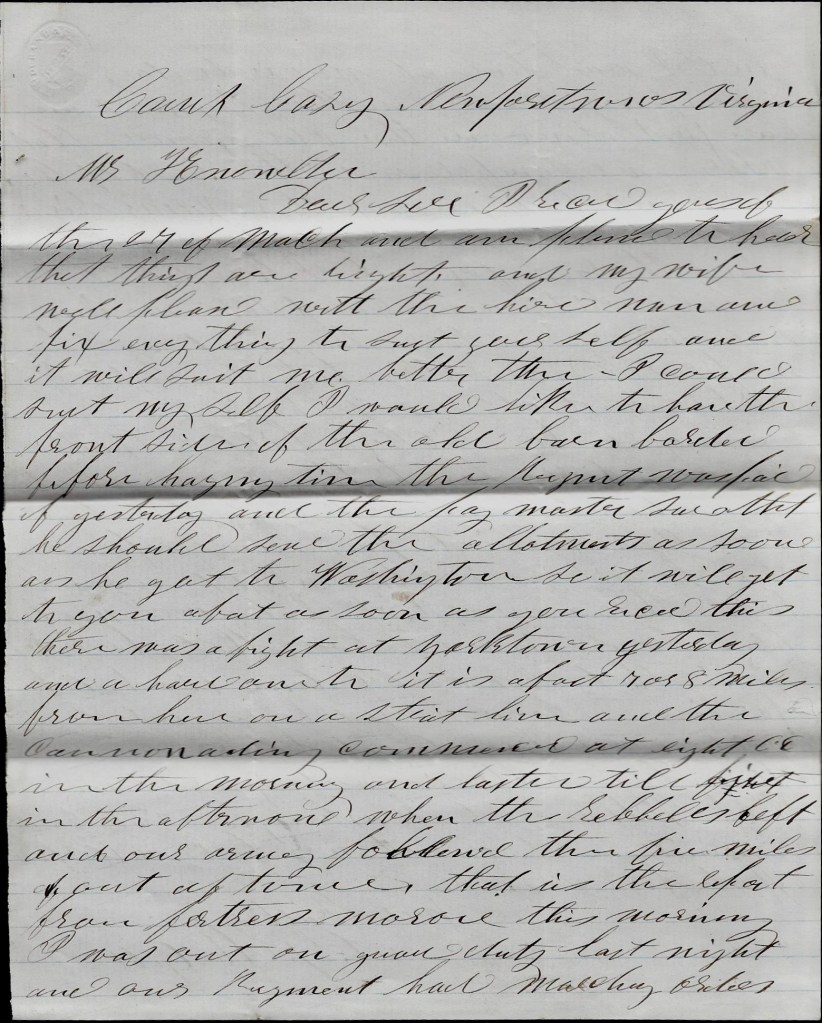 Camp Casy Newportnews Virginia
Mr Knowlton
Dear Sir I recd yours of
the 27 of March and am pleasd to hear
that things are right and my wife
well pleasd with the hired man and
fix every thing to suit your self and
it will suit me better then I could
suit my self I would like to have the
front side of the old barn borded
before haying time the Regment was paid
of yesterday and the pay master said that
he should send the allotments as soon
as he got to Washington so it will get
to you abat as soon as you recd this
there was a fight at yorktown yesterday
and a hard one to it is abat 7 or 8 miles
from here on a strat line and the
cannonading commenced at eight oc
in the morning and lasted till
in the afternone when the rebbels left
and our armey follerd them five miles
out of towne, that is the report
from fortress moroe this morning
I was out on guard duty last night
and our Regment had marching orders